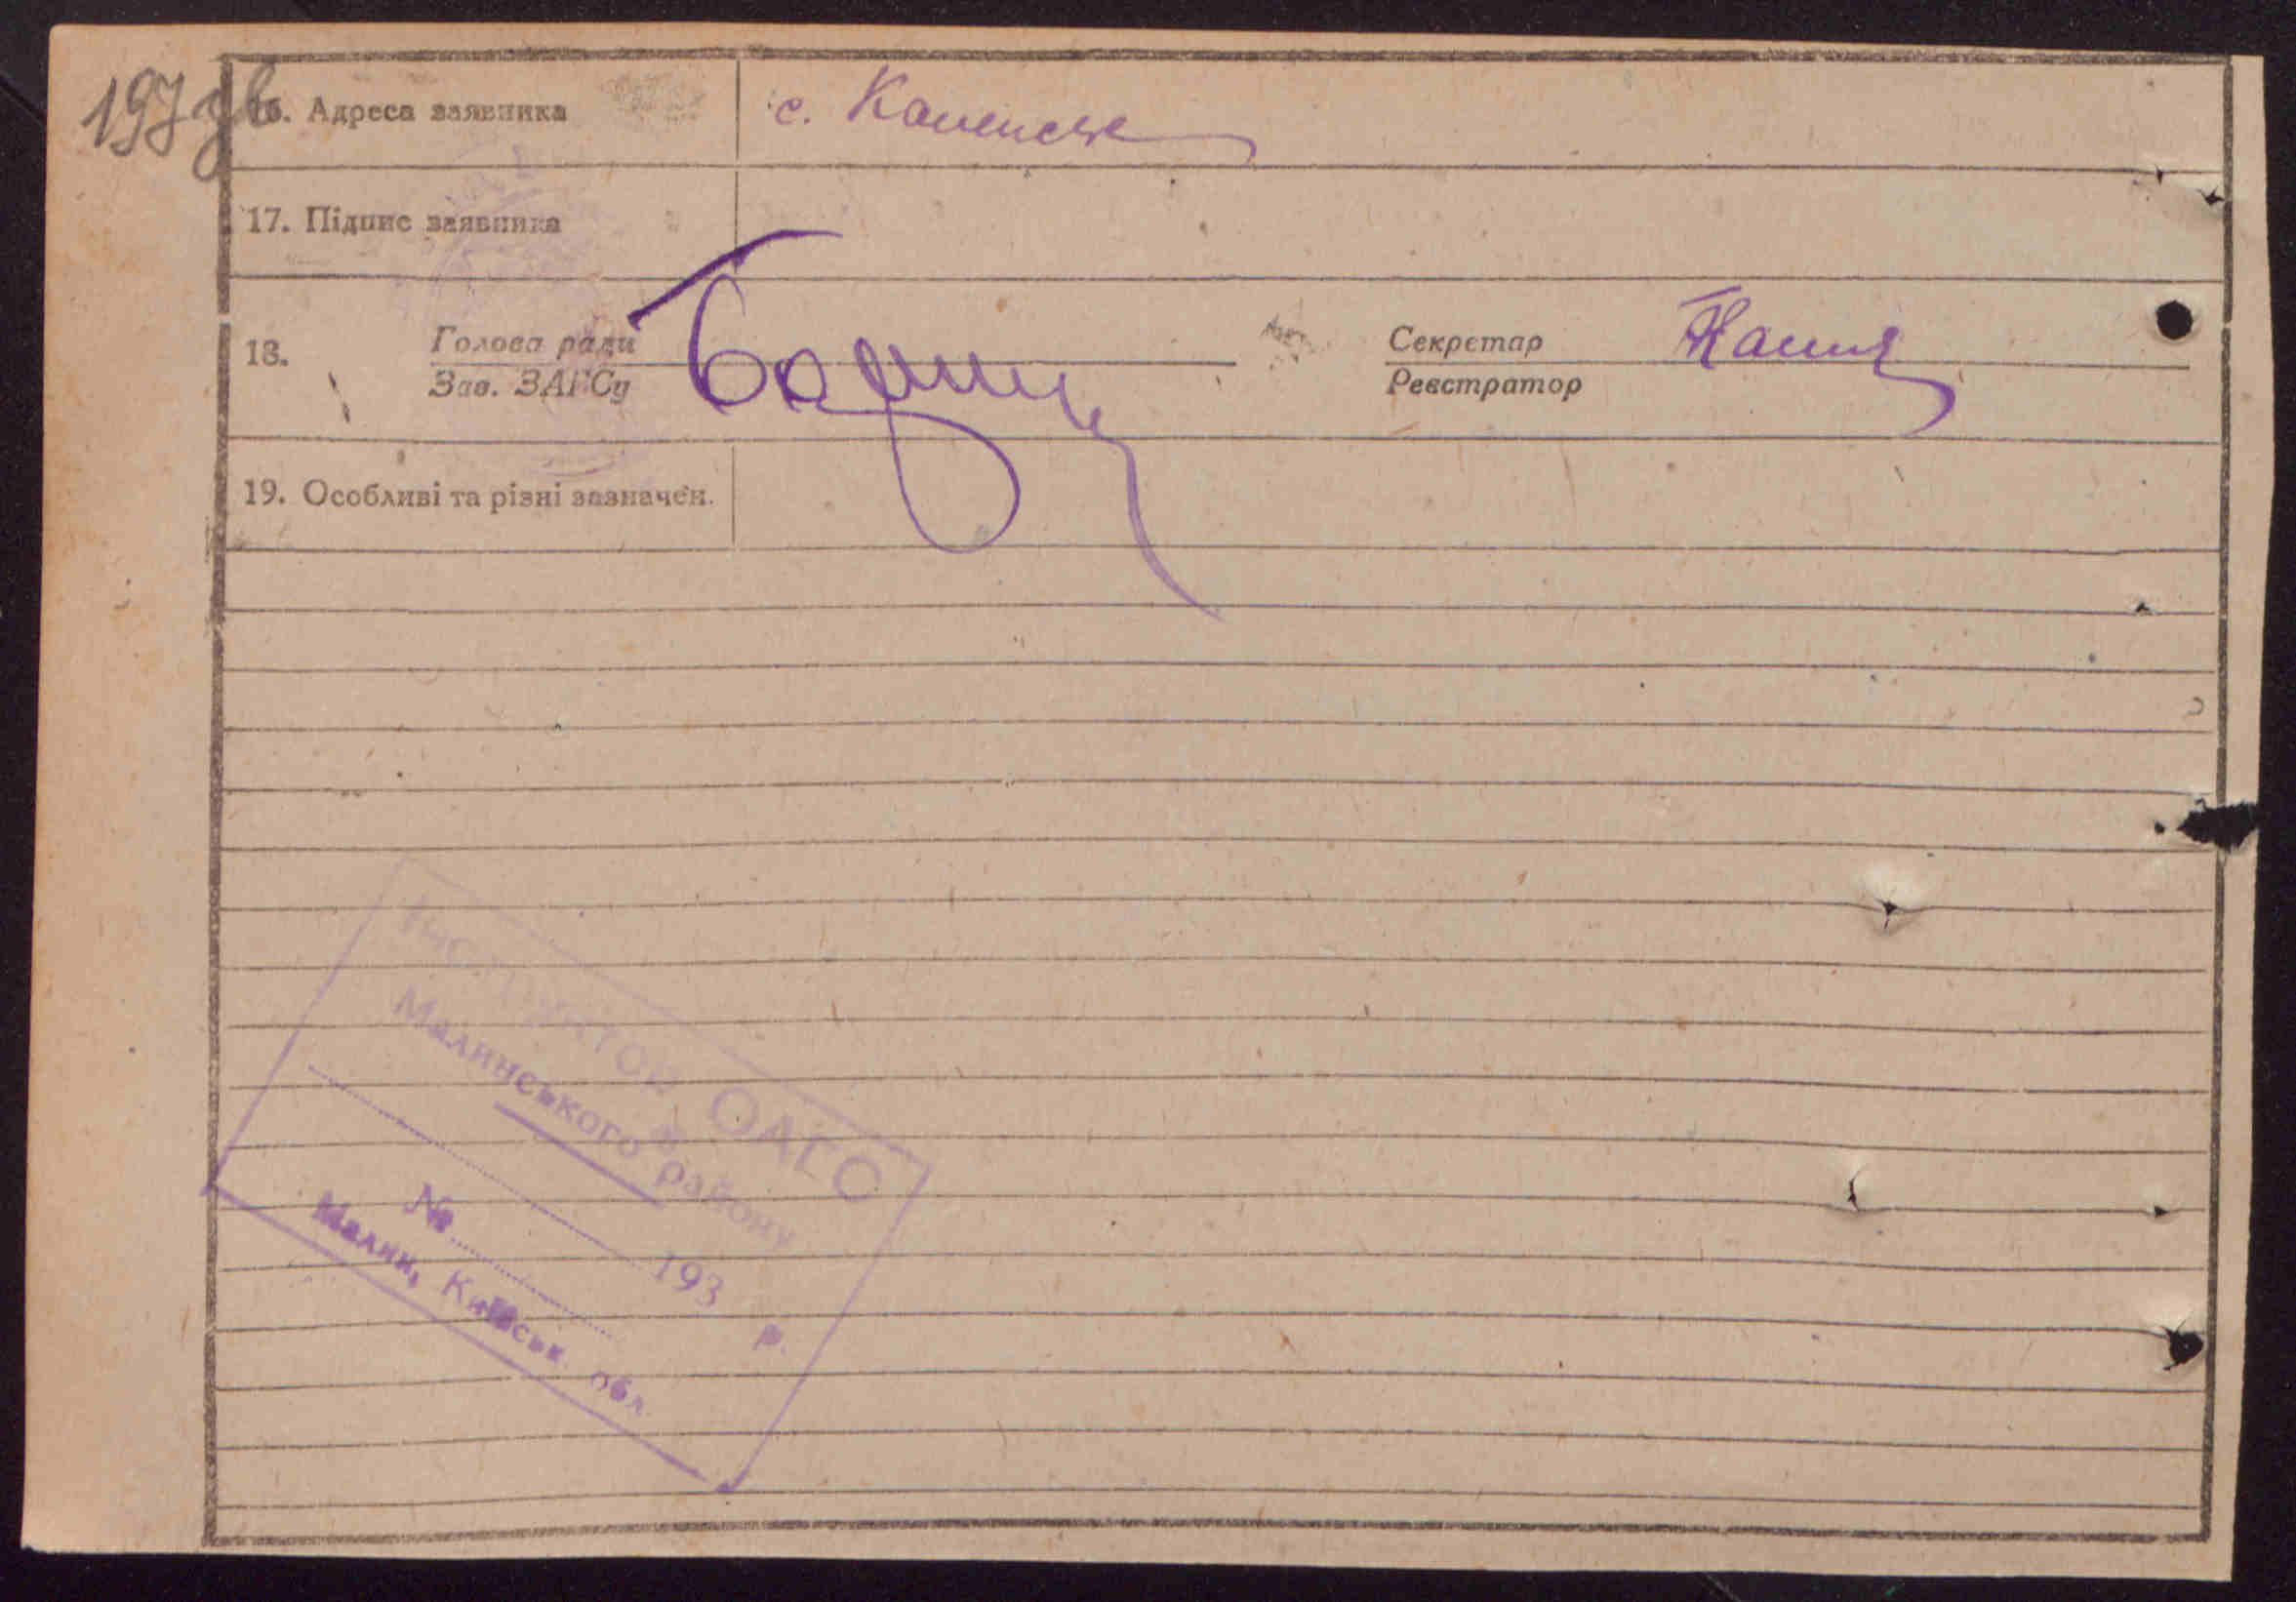 197 зв
16. Адреса заявника
с.
17. Підпис заявника
18. Голова ради
Зав. ЗАГСу
Секретар
Реєстратор
19. Особливі та різні зазначен.
Інструктор ОАГС
Малинського району
193 р.
№
Малин, Київськ. обл.